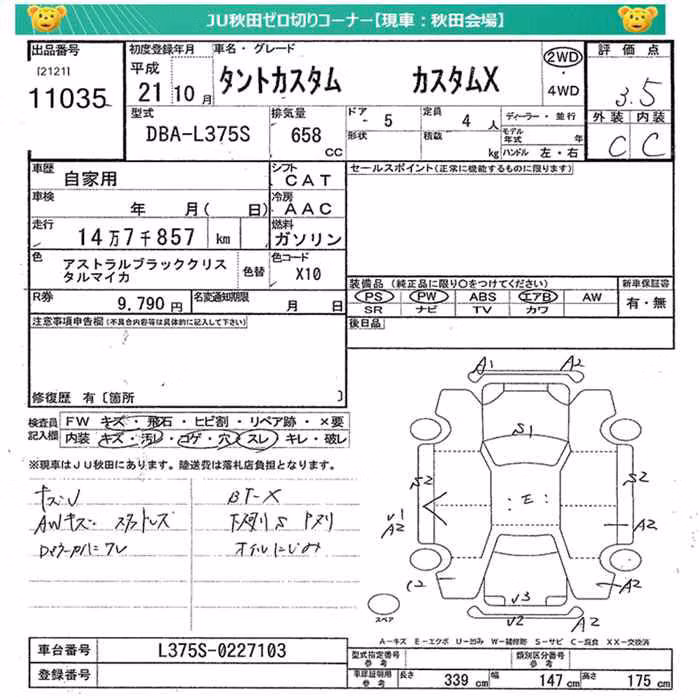 JU秋田ゼロ切りコーナー【現車：秋田会場】
出品番号 初度登録年月 車名・グレード 評価点
[2121] 11035 平成 21 10月 タントカスタム カスタムX 2WD・4WD 3.5
型式 排気量 ドア 5 定員 4 人 ディーラー・並行 外装 内装
DBA-L375S 658 CC 形状 積載 kg モデル年式 年 ハンドル 左・右 C C
車歴 自家用 シフト CAT セールスポイント(正常に機能するものに限ります)
車検 年 月( 日) 冷房 AAC
走行 14万7千857 km 燃料 ガソリン
色 アストラルブラッククリスタルマイカ 色替 色コード X10
装備品 (純正品に限り○をつけてください) 新車保証書
R券 9,790円 名変通知期限 月 日 PS PW ABS エアB AW 有・無
SR ナビ TV カワ
注意事項申告欄(不具合内容等は具体的に記入して下さい) 後日品
修復歴 有〔箇所 〕
検査員記入欄 FW キズ・飛石・ヒビ割・リペア跡・×要
内装 キズ・汚レ・コゲ・穴・スレ・キレ・破レ
※現車はJU秋田にあります。陸送費は落札店負担となります。
キズU BT-X
AWキズ・スタッドレス 下廻りS
オイルにじみ
A1 A2
S1
S2 S2
E
V1 A2 A2
C2 A2
V3
V2 A2
スペア
A－キズ E－エクボ U－凹み W－補修跡 S－サビ C－腐食 XX－交換済
車台番号 L375S-0227103 型式指定番号 参考 類別区分番号 参考
登録番号 車庫証明用 参考 長さ 339 cm 幅 147 cm 高さ 175 cm